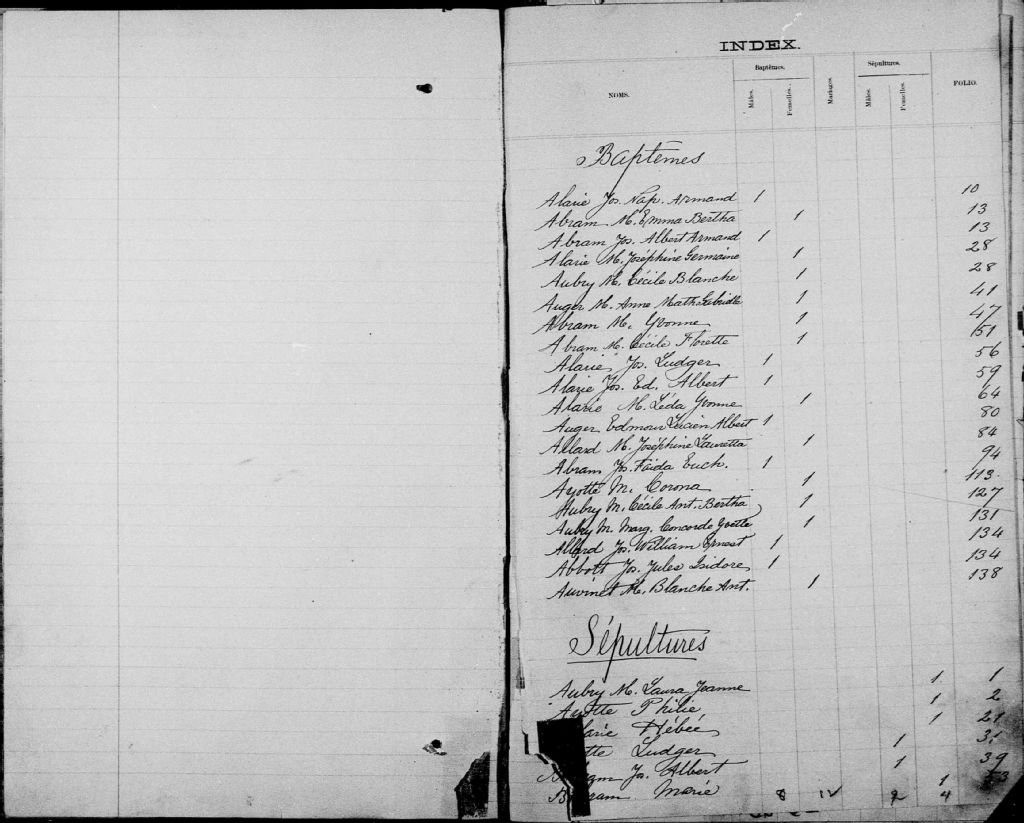 INDEX.
NOMS. Baptêmes. Mâles. Femelles. Mariages. Sépultures. Mâles. Femelles. FOLIO.
Baptêmes
Alarie Jos. Nap. Armand 1 10
Abram M. Emma Bertha 1 13
Abram Jos. Albert Armand 1 13
Alarie M. Joséphine Germaine 1 28
Aubry M. Cécile Blanche 1 28
Auger M. Anne Math. Gabrielle 1 41
Abram M. Yvonne 1 47
Abram M. Cécile Florette 1 51
Alarie Jos. Ludger 1 56
Alarie Jos. Ed. Albert 1 59
Alarie M. Léda Yvonne 1 64
Auger Edmour Lucien Albert 1 80
Allard M. Joséphine Lauretta 1 84
Abram Jos. Faida Euch. 1 94
Ayotte M. Corona 1 113
Aubry M. Cécile Ant. Bertha 1 127
Aubry M. Marg. Concorde Yvette 1 131
Allard Jos. William Ernest 1 134
Abbott Jos. Jules Isidore 1 134
Auvinet M. Blanche Ant. 1 138
Sépultures
Aubry M. Laura Jeanne 1 1
Ayotte Philie 1 2
arie Hébée 1 21
tte Ludger 1 31
am Jos. Albert 1 39
ram Marie 1
8 12 2 4